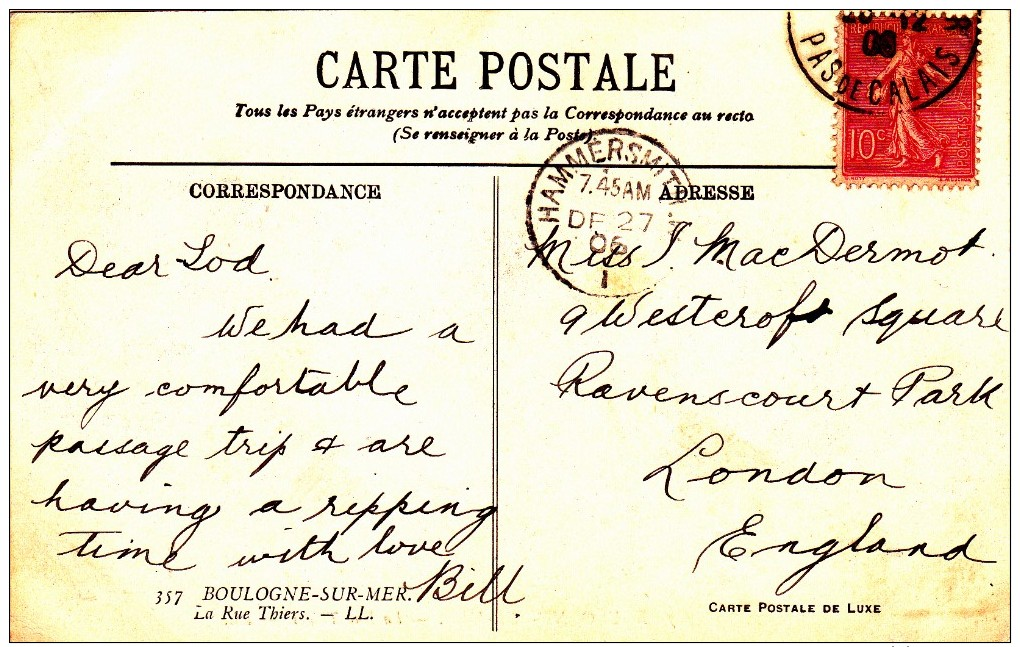 CARTE POSTALE
Tous les Pays étrangers n'acceptent pas la Correspondance au recto
(Se renseigner à la Poste)
RÉPUBLIQUE FRANÇAISE
10c
POSTES
12
06
PAS DE CALAIS
HAMMERSMITH
7.45AM
DE 27
06
1
CORRESPONDANCE
Dear Tod.
We had a
very comfortable
passage trip & are
having a ripping
time with love
Bill
357 BOULOGNE-SUR-MER.
La Rue Thiers. — LL.
ADRESSE
Miss I. MacDermot.
9 Westcroft Square
Ravenscourt Park
London
England
CARTE POSTALE DE LUXE